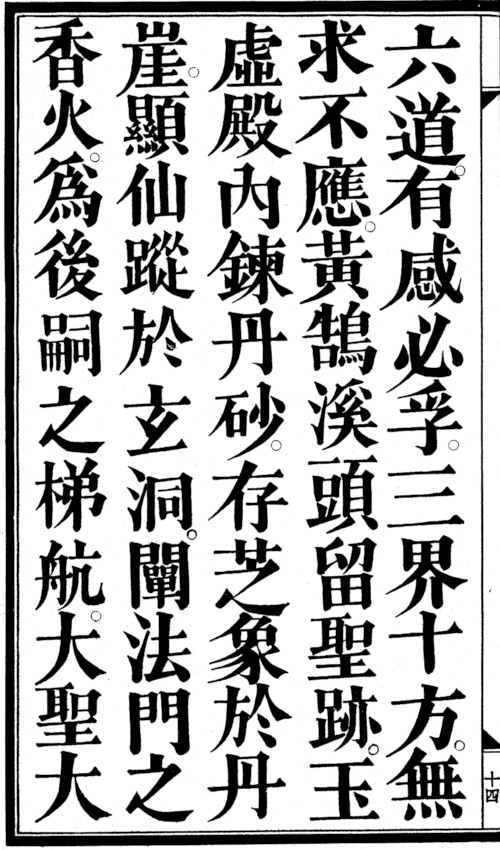 六道。有感必孚。三界十方。無
求不應。黃鵠溪頭留聖跡。玉
虛殿內鍊丹砂。存芝象於丹
崖。顯仙蹤於玄洞。闡法門之
香火。爲後嗣之梯航。大聖大
十四